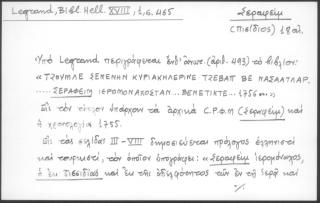 Legrand, Bibl. Hell. XVIII, 1, σ. 465
Σεραφείμ
(Πισίδιος) 18αι.
Ὑπὸ Legrand περιγράφεται ὑπ' ἀριθ. (ἀριθ. 493) τὸ βιβλίον:
« ΤΖΟΥΜΛΕ ΣΕΝΕΝΗΝ ΚΥΡΙΑΚΗΛΕΡΙΝΕ ΤΖΕΒΑΠ ΒΕ ΝΑΣΑΑΤΛΑΡ.
..... ΣΕΡΑΦΕΙΜ ΙΕΡΟΜΟΝΑΧΟΣΤΑΝ... ΒΕΝΕΤΙΚΤΕ... 1756 »
Εἰς τὸν τίτλον ὑπάρχουν τὰ ἀρχικὰ С.Р.Ф.М (Σεραφείμ) καὶ
ἡ χρονολογία 1755.
Εἰς τὰς σελίδας III - VIII δημοσιεύεται πρόλογος ἑλληνιστὶ
καὶ τουρκιστί, τὸν ὁποῖον ὑπογράφει: « Σεραφεὶμ ἱερομόναχος,
ὁ ἐκ Πισσιδίας καὶ ἐκ τῆς ἀδελφότητος τῶν ἐν τῇ ἱερᾷ καὶ